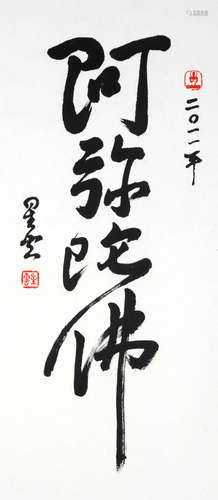 二〇一一年
阿弥陀佛
星雲